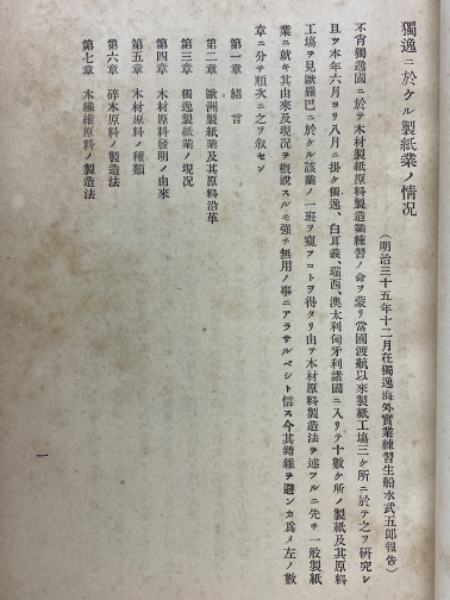 獨逸ニ於ケル製紙業ノ情況
（明治三十五年十二月在獨逸海外實業練習生船水武五郎報告）
不肖獨逸國ニ於テ木材製紙原料製造業練習ノ命ヲ蒙リ當國渡航以來製紙工塲三ケ所ニ於テ之ヲ硏究シ
且ツ本年六月ヨリ八月ニ掛ケ獨逸、白耳義、瑞西、澳太利匈牙利諸國ニ入リテ十數ケ所ノ製紙及其原料
工塲ヲ見歐羅巴ニ於ケル該業ノ一班ヲ窺フコトヲ得タリ由テ木材原料製造法ヲ述フルニ先チ一般製紙
業ニ就キ其由來及現况ヲ概說スルモ强チ無用ノ事ニアラサルベシト信ス今其錯雜ヲ避ンカ爲メ左ノ數
章ニ分チ順次ニ之ヲ叙セン
第一章　緖言
第二章　歐洲製紙業及其原料沿革
第三章　獨逸製紙業ノ現况
第四章　木材原料發明ノ由來
第五章　木材原料ノ種類
第六章　碎木原料ノ製造法
第七章　木纖維原料ノ製造法
一